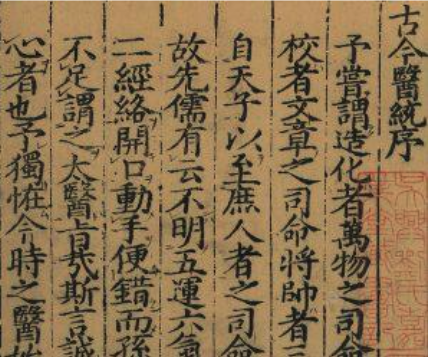 古今醫統序
予嘗謂造化者萬物之司命
校者文章之司命將帥者三
自天子以至庶人者之司命
故先儒有云不明五運六氣
二經絡開口動手便錯而孫
不足謂之太醫旨哉斯言誠
心者也予獨怪今時之醫